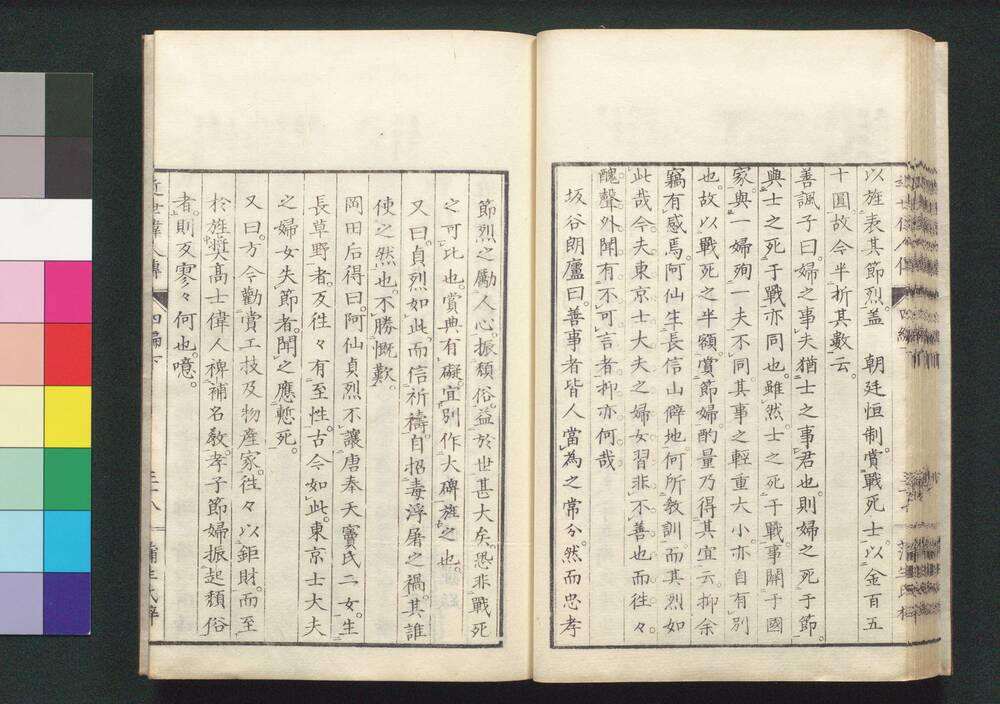 以旌表其節烈。蓋　朝廷恒制。賞戰死士。以金百五
十圓。故今半折其數云。
善諷子曰。婦之事夫。猶士之事君也。則婦之死于節。
與士之死于戰亦同也。雖然。士之死于戰。事關于國
家。與一婦殉一夫不同。其事之輕重大小。亦自有別
也。故以戰死之半額。賞節婦。酌量乃得其宜云。抑余
竊有感焉。阿仙生長信山僻地。何所敎訓。而其烈如
此哉。今夫東京士大夫之婦女。習非不善也。而往々
醜聲外聞。有不可言者。抑亦何哉
坂谷朗廬曰。善事者皆人當爲之常分。然而忠孝
節烈之勵人心。振頽俗。益於世甚大矣。恐非戰死
之可比也。賞典有礙。宜別作大碑旌之也。
又曰。貞烈如此。而信祈禱。自招毒浮屠之禍。其誰
使之然也。不勝慨歎。
岡田后得曰。阿仙貞烈不讓唐奉天竇氏二女。生
長草野者。反往々有至性。古今如此。東京士大夫
之婦女失節者。聞之應慙死。
又曰。方今勸賞工技及物產家。往々以鉅財。而至
於旌奬高士偉人裨補名敎。孝子節婦振起頽俗
者。則反寥々何也。噫。
近世偉人傳
四編下
三十八
蒲生氏梓